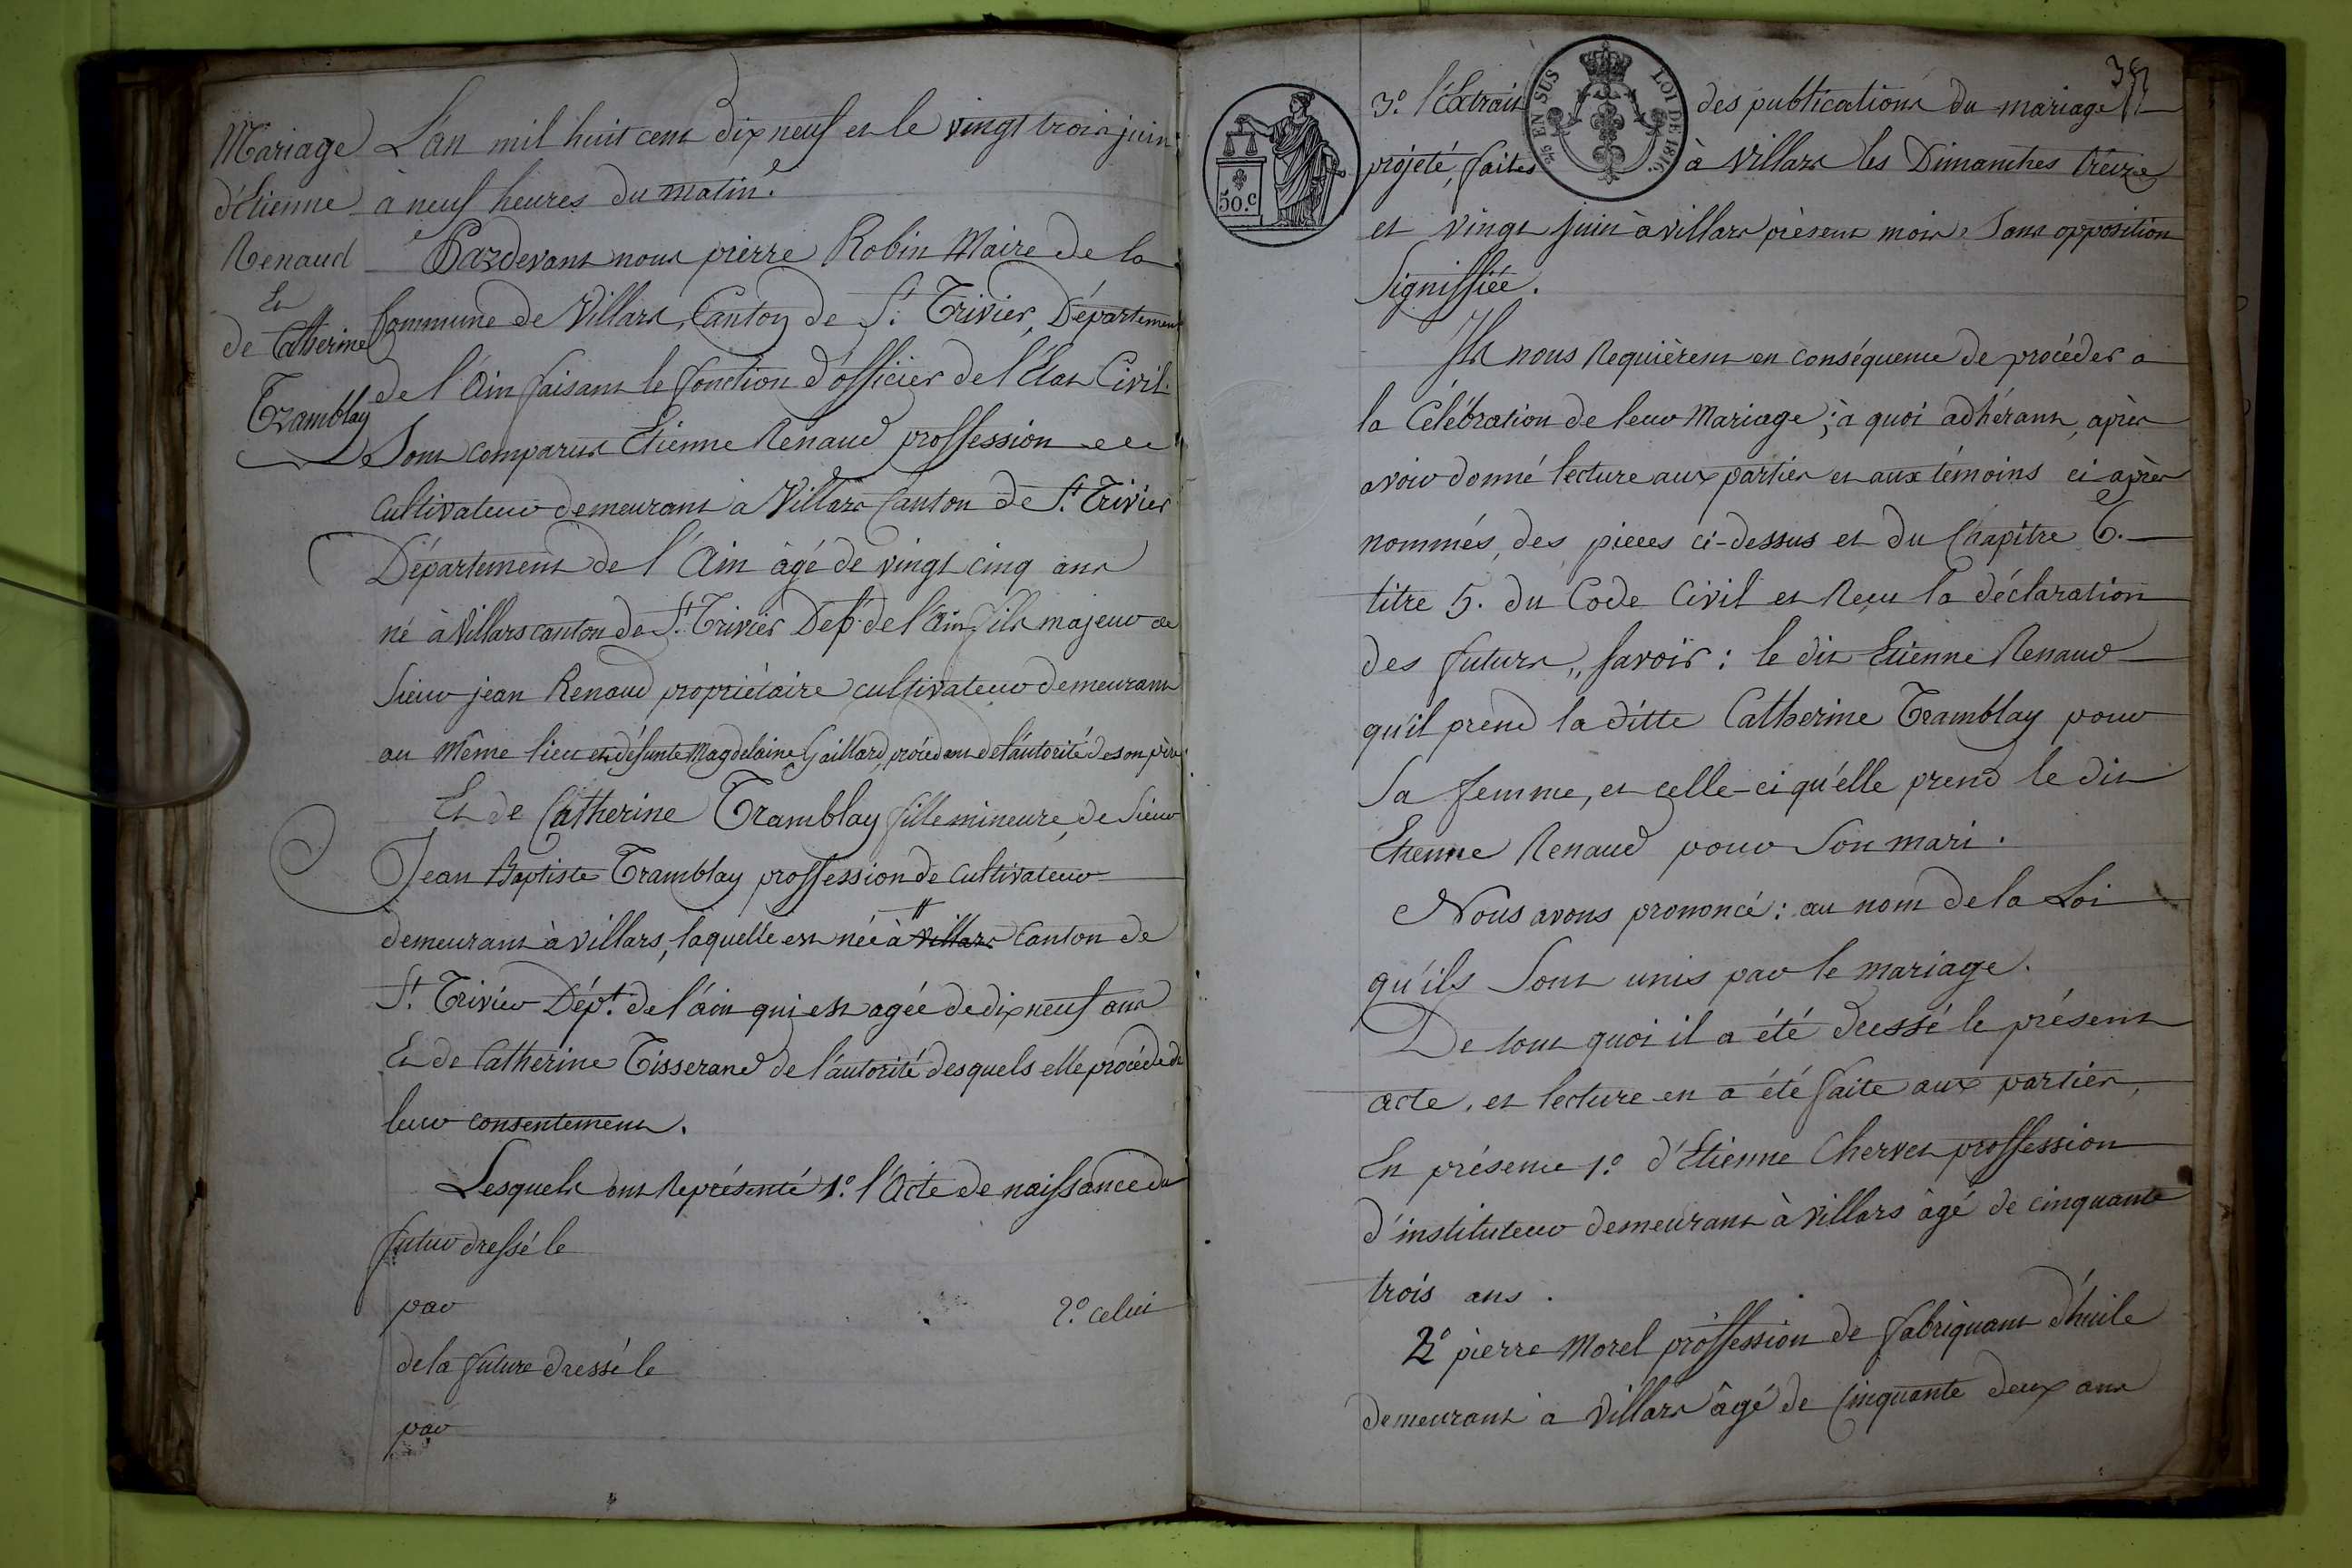 Mariage
d'Etienne
Renaud
Et
de Catherine
Tramblay
L'an mil huit cent dix neuf et le vingt trois juin
à neuf heures du matin.
Pardevant nous pierre Robin Maire de la
Commune de Villars, Canton de St. Trivier, Département
de l'Ain faisant le fonction d'officier de l'État Civil.
Sont comparus Etienne Renaud proffession de
Cultivateur demeurant à Villars Canton de St. Trivier
Département de l'Ain âgé de vingt cinq ans
né à Villars canton de St. Trivier Dept. de l'Ain fils majeur de
Sieur jean Renaud propriétaire cultivateur demeurant
au même lieu et défunte Magdelaine Gaillard, procédant de l'autorité de son père
Et de Catherine Tramblay fille mineure, de Sieur
Jean Baptiste Tramblay proffession de Cultivateur
demeurant à villars, laquelle est née à villars Canton de
St. Trivier Dépt. de l'ain qui est agée de dix neuf ans
Et de Catherine Tisserand de l'autorité desquels elle procède de
leur consentement.
Lesquels ont Représenté 1.º l'Acte de naissance du
futur dressé le
par 2.º celui
de la future dressé le
par
35
EN SUS LOI DE 1816.
50.c
3.º l'Extrait des publications du mariage
projeté, faites à Villars les Dimanches treize
et vingt juin à villars présent mois, Sans opposition
Signiffiée.
Ils nous Requièrent en conséquence de procéder à
la Célébration de leur Mariage; à quoi adhérant, après
avoir donné lecture aux parties et aux témoins ci-après
nommés, des pieces ci-dessus et du Chapitre 6.
titre 5. du Code Civil et Reçu la déclaration
des futurs, Savoir: le dit Etienne Renaud
qu'il prend la ditte Catherine Tramblay pour
Sa femme, et celle-ci qu'elle prend le dit
Etienne Renaud pour Son mari.
Nous avons prononcé: au nom de la Loi
qu'ils Sont unis par le mariage.
De tout quoi il a été dressé le présent
acte, et lecture en a été faite aux parties,
En présence 1.º d'Etienne Chervet proffession
d'instituteur demeurant à villars âgé de cinquante
trois ans.
2º pierre Morel proffession de fabriquant d'huile
demeurant à Villars âgé de Cinquante deux ans